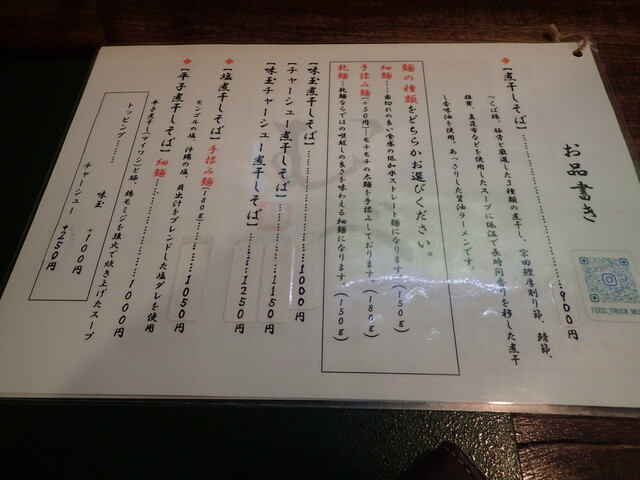 お品書き
FOOD_TRUCK_MU
◆【煮干しそば】 900円
「つくば鶏、豚骨と厳選した3種類の煮干し、宗田鰹厚削り節、鯖節、
椎茸、真昆布などを使用したスープに低温で長時間香りを移した煮干
し香味油を使用。あっさりした醤油ラーメンです。
麺の種類をどちらかお選びください。
細麺…歯切れの良い食感の低加水ストレート麺になります。(150g)
手揉み麺(+50円)…モチモチの太麺を手揉みしております(180g)
純麺…純麺ならではの喉越しの良さを味わえる細麺になります(150g)
【味玉煮干しそば】 1000円
【チャーシュー煮干しそば】 1150円
【味玉チャーシュー煮干しそば】 1250円
◆【塩煮干しそば】手揉み麺(180g) 1050円
モンゴルの塩、沖縄の塩、貝出汁をブレンドした塩ダレを使用
◆【平子煮干しそば】細麺 1000円
平子煮干し(マイワシ)と豚、鶏モミジを強火で炊き上げたスープ
トッピング……
味玉 +100円
チャーシュー +250円